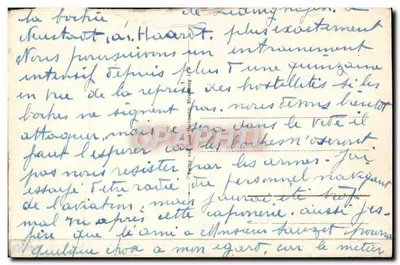 la bochie, de Ludwigshafen. à
Neustadt, a. Haardt. plus exactement
Nous poursuivons un entrainement
intensif depuis plus d'une quinzaine
en vue de la reprise des hostilités si les
boches ne signent pas. nous devons bientôt
attaquer, mais ce sera dans le vide il
faut l'espérer car les boches n'oseront
pas nous resister par les armes. J'ai
essayé d'etre radié du personnel navigant
de l'aviation, mais j'aurai eté
mal vu après cette caponerie. aussi j'es-
père que l'ami a Monsieur pourra
quelque chose a mon egard, car le métier